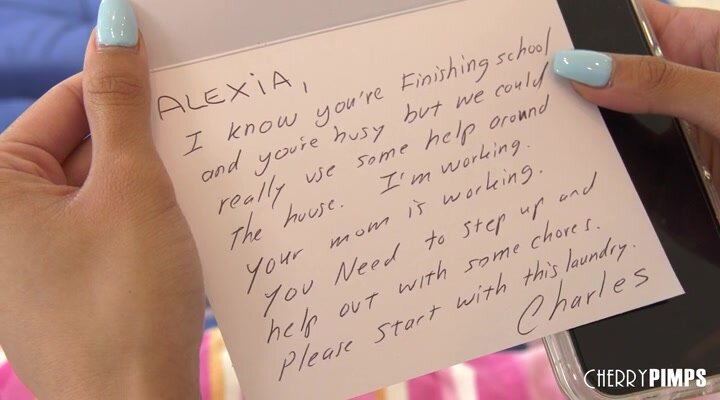 ALEXiA,
I know you're Finishing school
and you're busy but we could
really use some help around
The house. I'm working.
your mom is working.
you Need to step up and
help out with some chores.
please start with this laundry.
Charles
CHERRYPIMPS